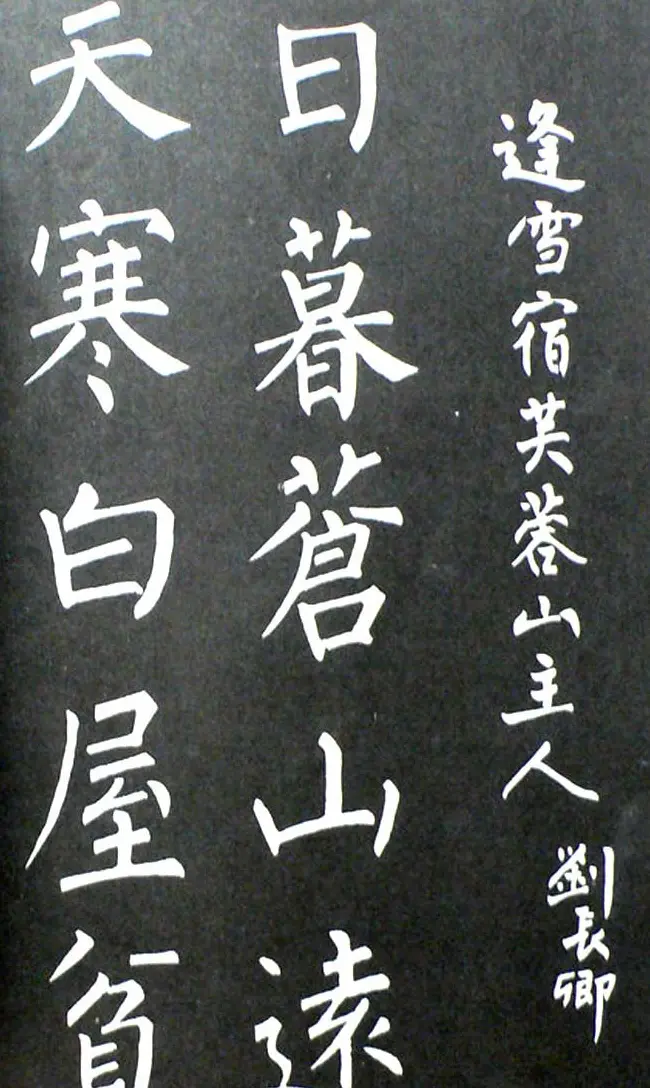 逢雪宿芙蓉山主人
劉長卿
日暮蒼山遠
天寒白屋貧